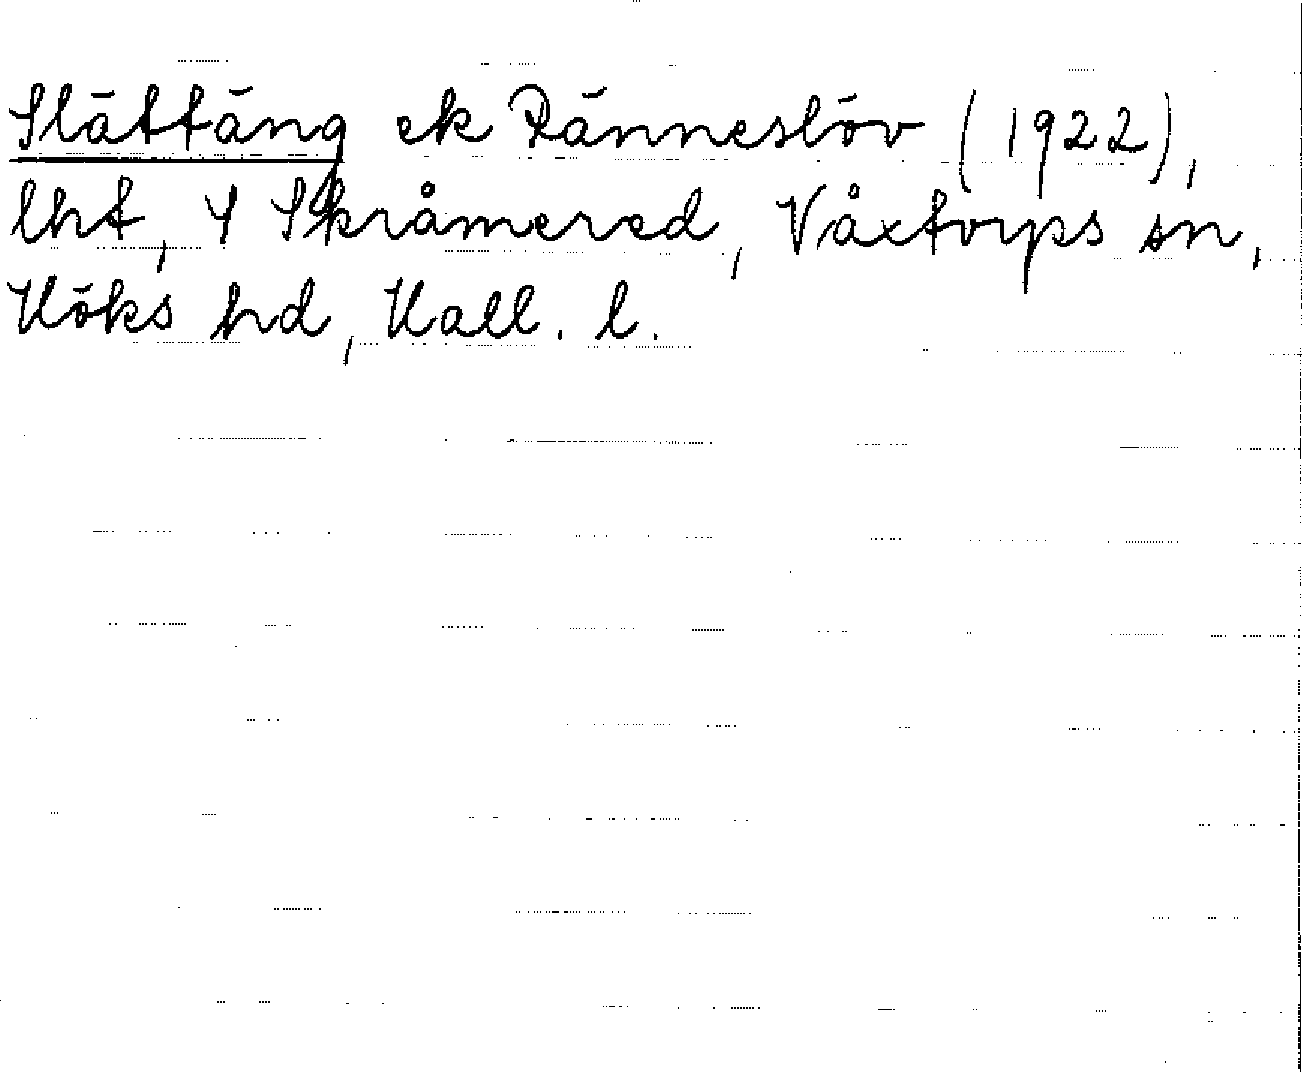 Slättäng ek Ränneslöv (1922),
lht, 4 Skråmered, Våxtorps sn,
Höks hd, Hall. l.